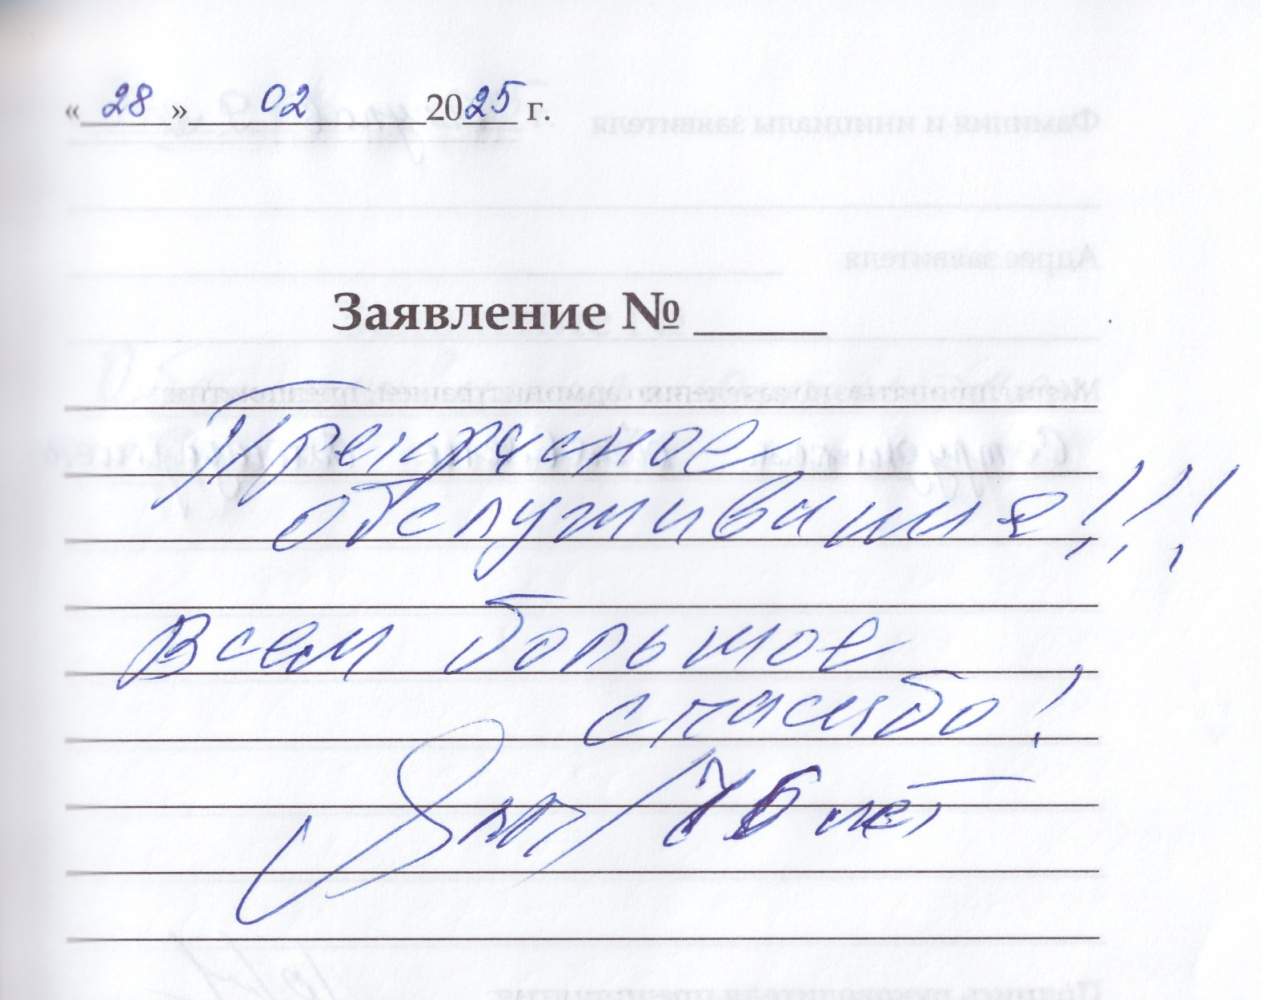 « 28 » 02 2025 г.
Заявление № ______
Прекрасное
обслуживание!!!
Всем большое
спасибо!
лет